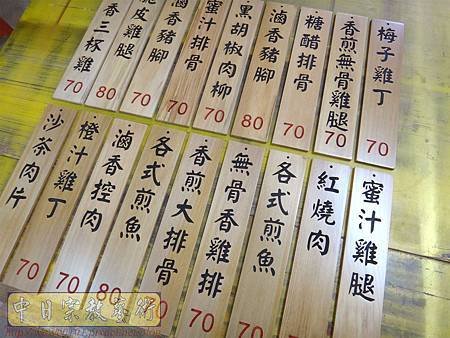 梅子雞丁
70
香煎無骨雞腿
70
糖醋排骨
70
滷香豬腳
80
黑胡椒肉柳
70
蜜汁排骨
70
滷香豬腳
70
皮雞腿
80
香三杯雞
70
蜜汁雞腿
紅燒肉
各式煎魚
70
無骨香雞排
70
香煎大排骨
70
各式煎魚
滷香控肉
80
橙汁雞丁
70
沙茶肉片
70
中日宗教藝術